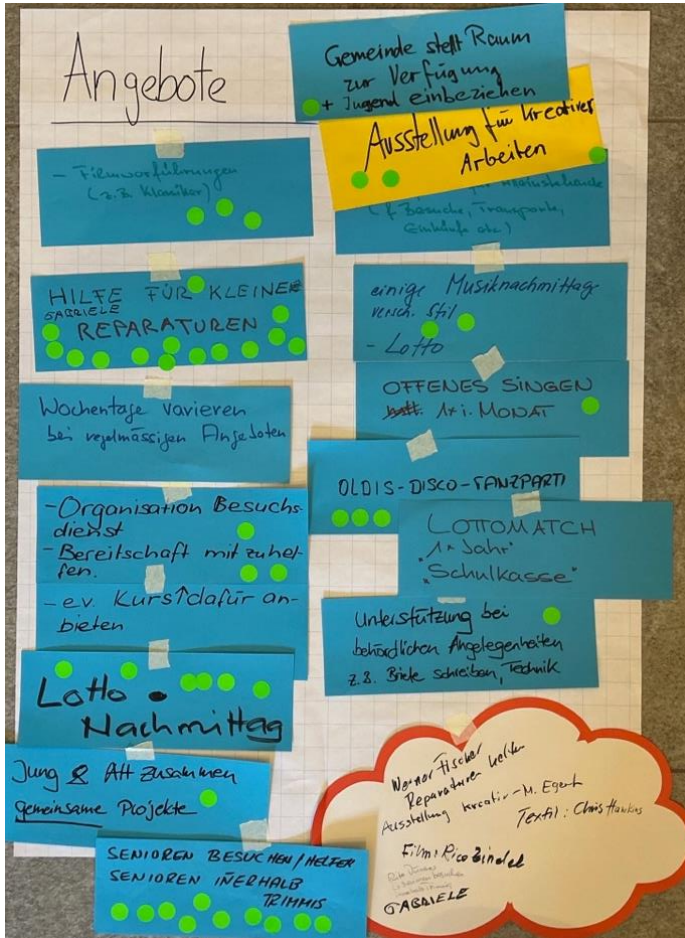 Angebote
Gemeinde stellt Raum
zur Verfügung
+ Jugend einbeziehen
Ausstellung für kreativer
Arbeiten
- Filmvorführungen
(z.B. Klassiker)
(f. Besuche, Transporte,
Einkäufe etc.)
HILFE FÜR KLEINE
GABRIELE
REPARATUREN
einige Musiknachmittage
versch. Stil
- Lotto
OFFENES SINGEN
1x i. MONAT
Wochentage varieren
bei regelmässigen Angeboten
OLDIS-DISCO-TANZPARTI
- Organisation Besuchs-
dienst
- Bereitschaft mitzuhel-
fen.
LOTTOMATCH
1x Jahr
"Schulkasse"
- ev. Kurs dafür an-
bieten
Unterstützung bei
behördlichen Angelegenheiten
z.B. Briefe schreiben, Technik
Lotto
Nachmittag
Jung & Alt zusammen
gemeinsame Projekte
SENIOREN BESUCHEN/HELFER
SENIOREN INERHALB
TRIMMIS
Werner Fischer
Reparaturen
Ausstellung kreativ - M. Egert
Textil: Chris Hawkins
Film: Rico
GABRIELE